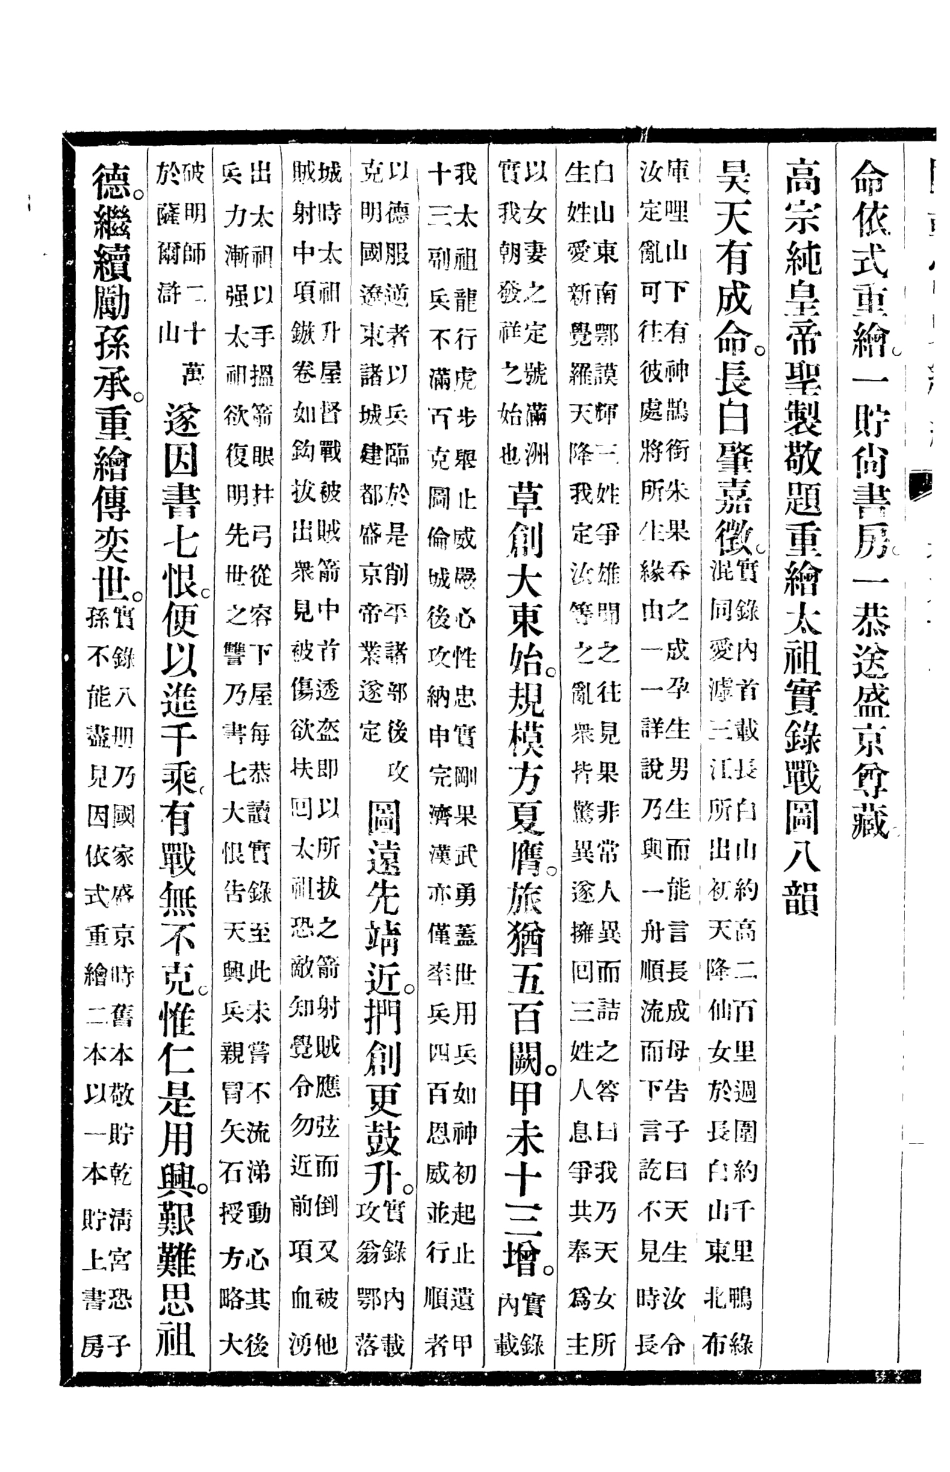 命依式重繪。一貯尙書房。一恭送盛京尊藏。
高宗純皇帝聖製敬題重繪太祖實錄戰圖八韻
昊天有成命。長白肇嘉徵。實錄內首載長白山約高二百里週圍約千里鴨綠
混同愛滹三江所出初天降仙女於長白山東北布
庫哩山下有神鵲銜朱果吞之成孕生男生而能言長成母告子曰天生汝令
汝定亂可往彼處將所生緣由一一詳說乃與一舟順流而下言訖不見時長
白山東南鄂謨輝三姓爭雄聞之往見果非常人異而詰之答曰我乃天女所
生姓愛新覺羅天降我定汝等之亂衆皆驚異遂擁回三姓人息爭共奉爲主
以女妻之定號滿洲
實我朝發祥之始也
草創大東始。規模方夏膺。旅猶五百闕。甲未十三增。實錄
內載
我太祖龍行虎步舉止威嚴心性忠實剛果武勇蓋世用兵如神初起止遺甲
十三副兵不滿百克圖倫城後攻納申完濟漢亦僅率兵四百恩威並行順者
以德服逆者以兵臨於是削平諸部後攻
克明國遼東諸城建都盛京帝業遂定
圖遠先靖近。捫創更鼓升。實錄內載
攻翁鄂落
城時太祖升屋督戰被賊箭中首透盔即以所拔之箭射賊應弦而倒又被他
賊射中項鏃卷如鈎拔出衆見被傷欲扶回太祖恐敵知覺令勿近前項血湧
出太祖以手搵箭眼拄弓從容下屋每恭讀實錄至此未嘗不流涕動心其後
兵力漸强太祖欲復明先世之讐乃書七大恨告天興兵親冒矢石授方略大
破明師二十萬
於薩爾滸山
遂因書七恨。便以進千乘。有戰無不克。惟仁是用興。艱難思祖
德。繼續勵孫承。重繪傳奕世。實錄八冊乃國家盛京時舊本敬貯乾淸宮恐子
孫不能盡見因依式重繪二本以一本貯上書房